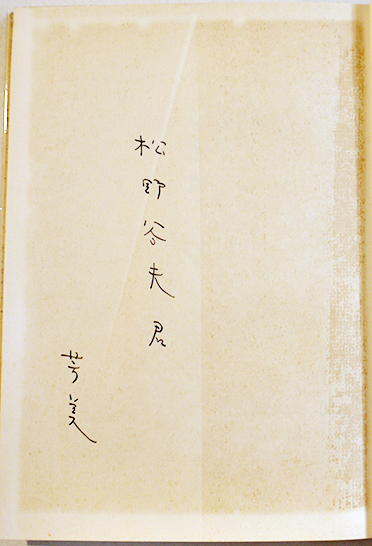 松野谷夫君
芳美